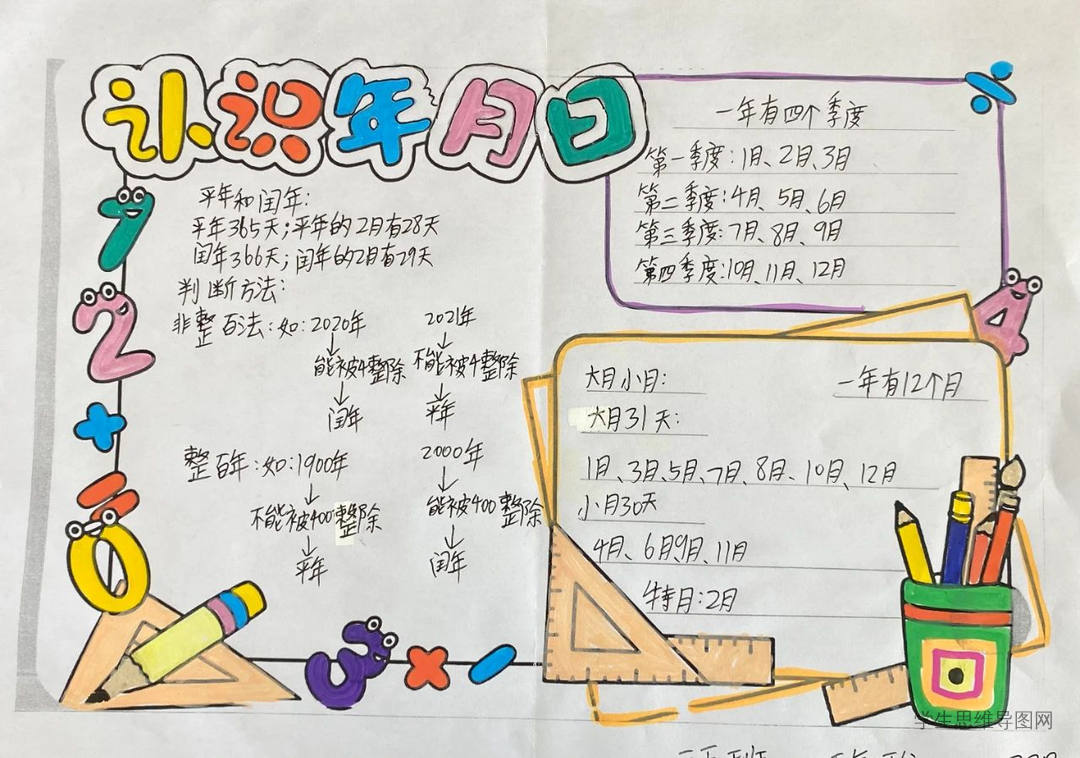 认识年月日
平年和闰年:
平年365天;平年的2月有28天
闰年366天;闰年的2月有29天
判断方法:
非整百法:如:2020年 2021年
能被4整除 不能被4整除
闰年 平年
整百年:如:1900年 2000年
不能被400整除 能被400整除
平年 闰年
一年有四个季度
第一季度:1月、2月、3月
第二季度:4月、5月、6月
第三季度:7月、8月、9月
第四季度:10月、11月、12月
大月小月: 一年有12个月
大月31天:
1月、3月、5月、7月、8月、10月、12月
小月30天
4月、6月9月、11月
特月:2月
1
2
+
=
0
3
×
4
÷
学生思维导图网